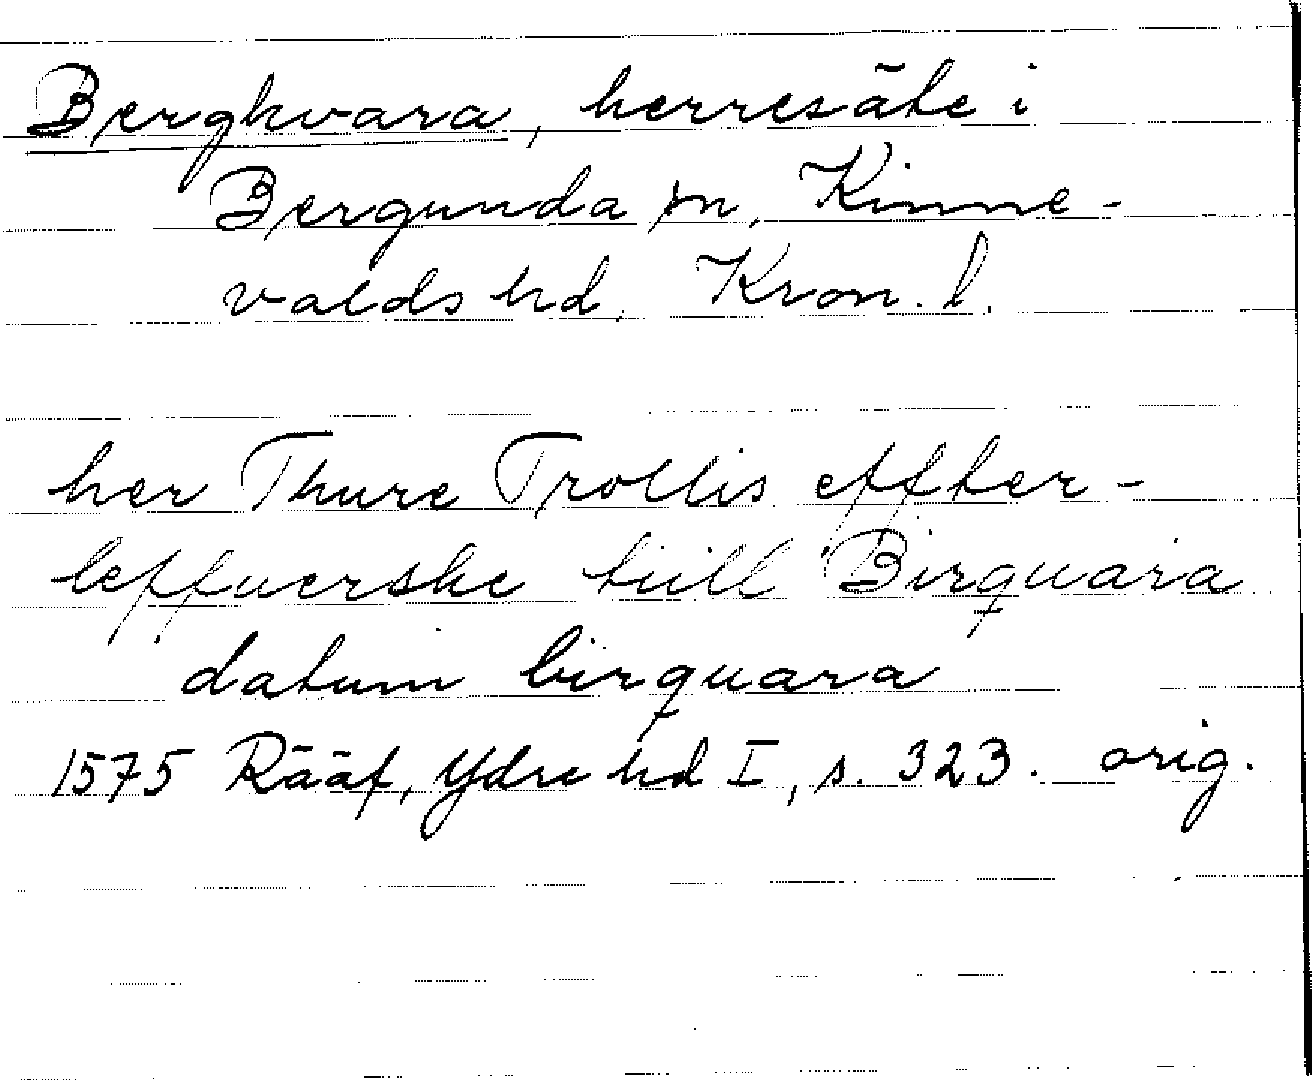 Bergkvara, herresäte i
Bergunda sn, Kinne-
valds hd, Kron. l.
her Thure Trollis effter-
leffuerske tiill Birquara
datum birquara
1575 Rääf, Ydre hd I, s. 323. orig.